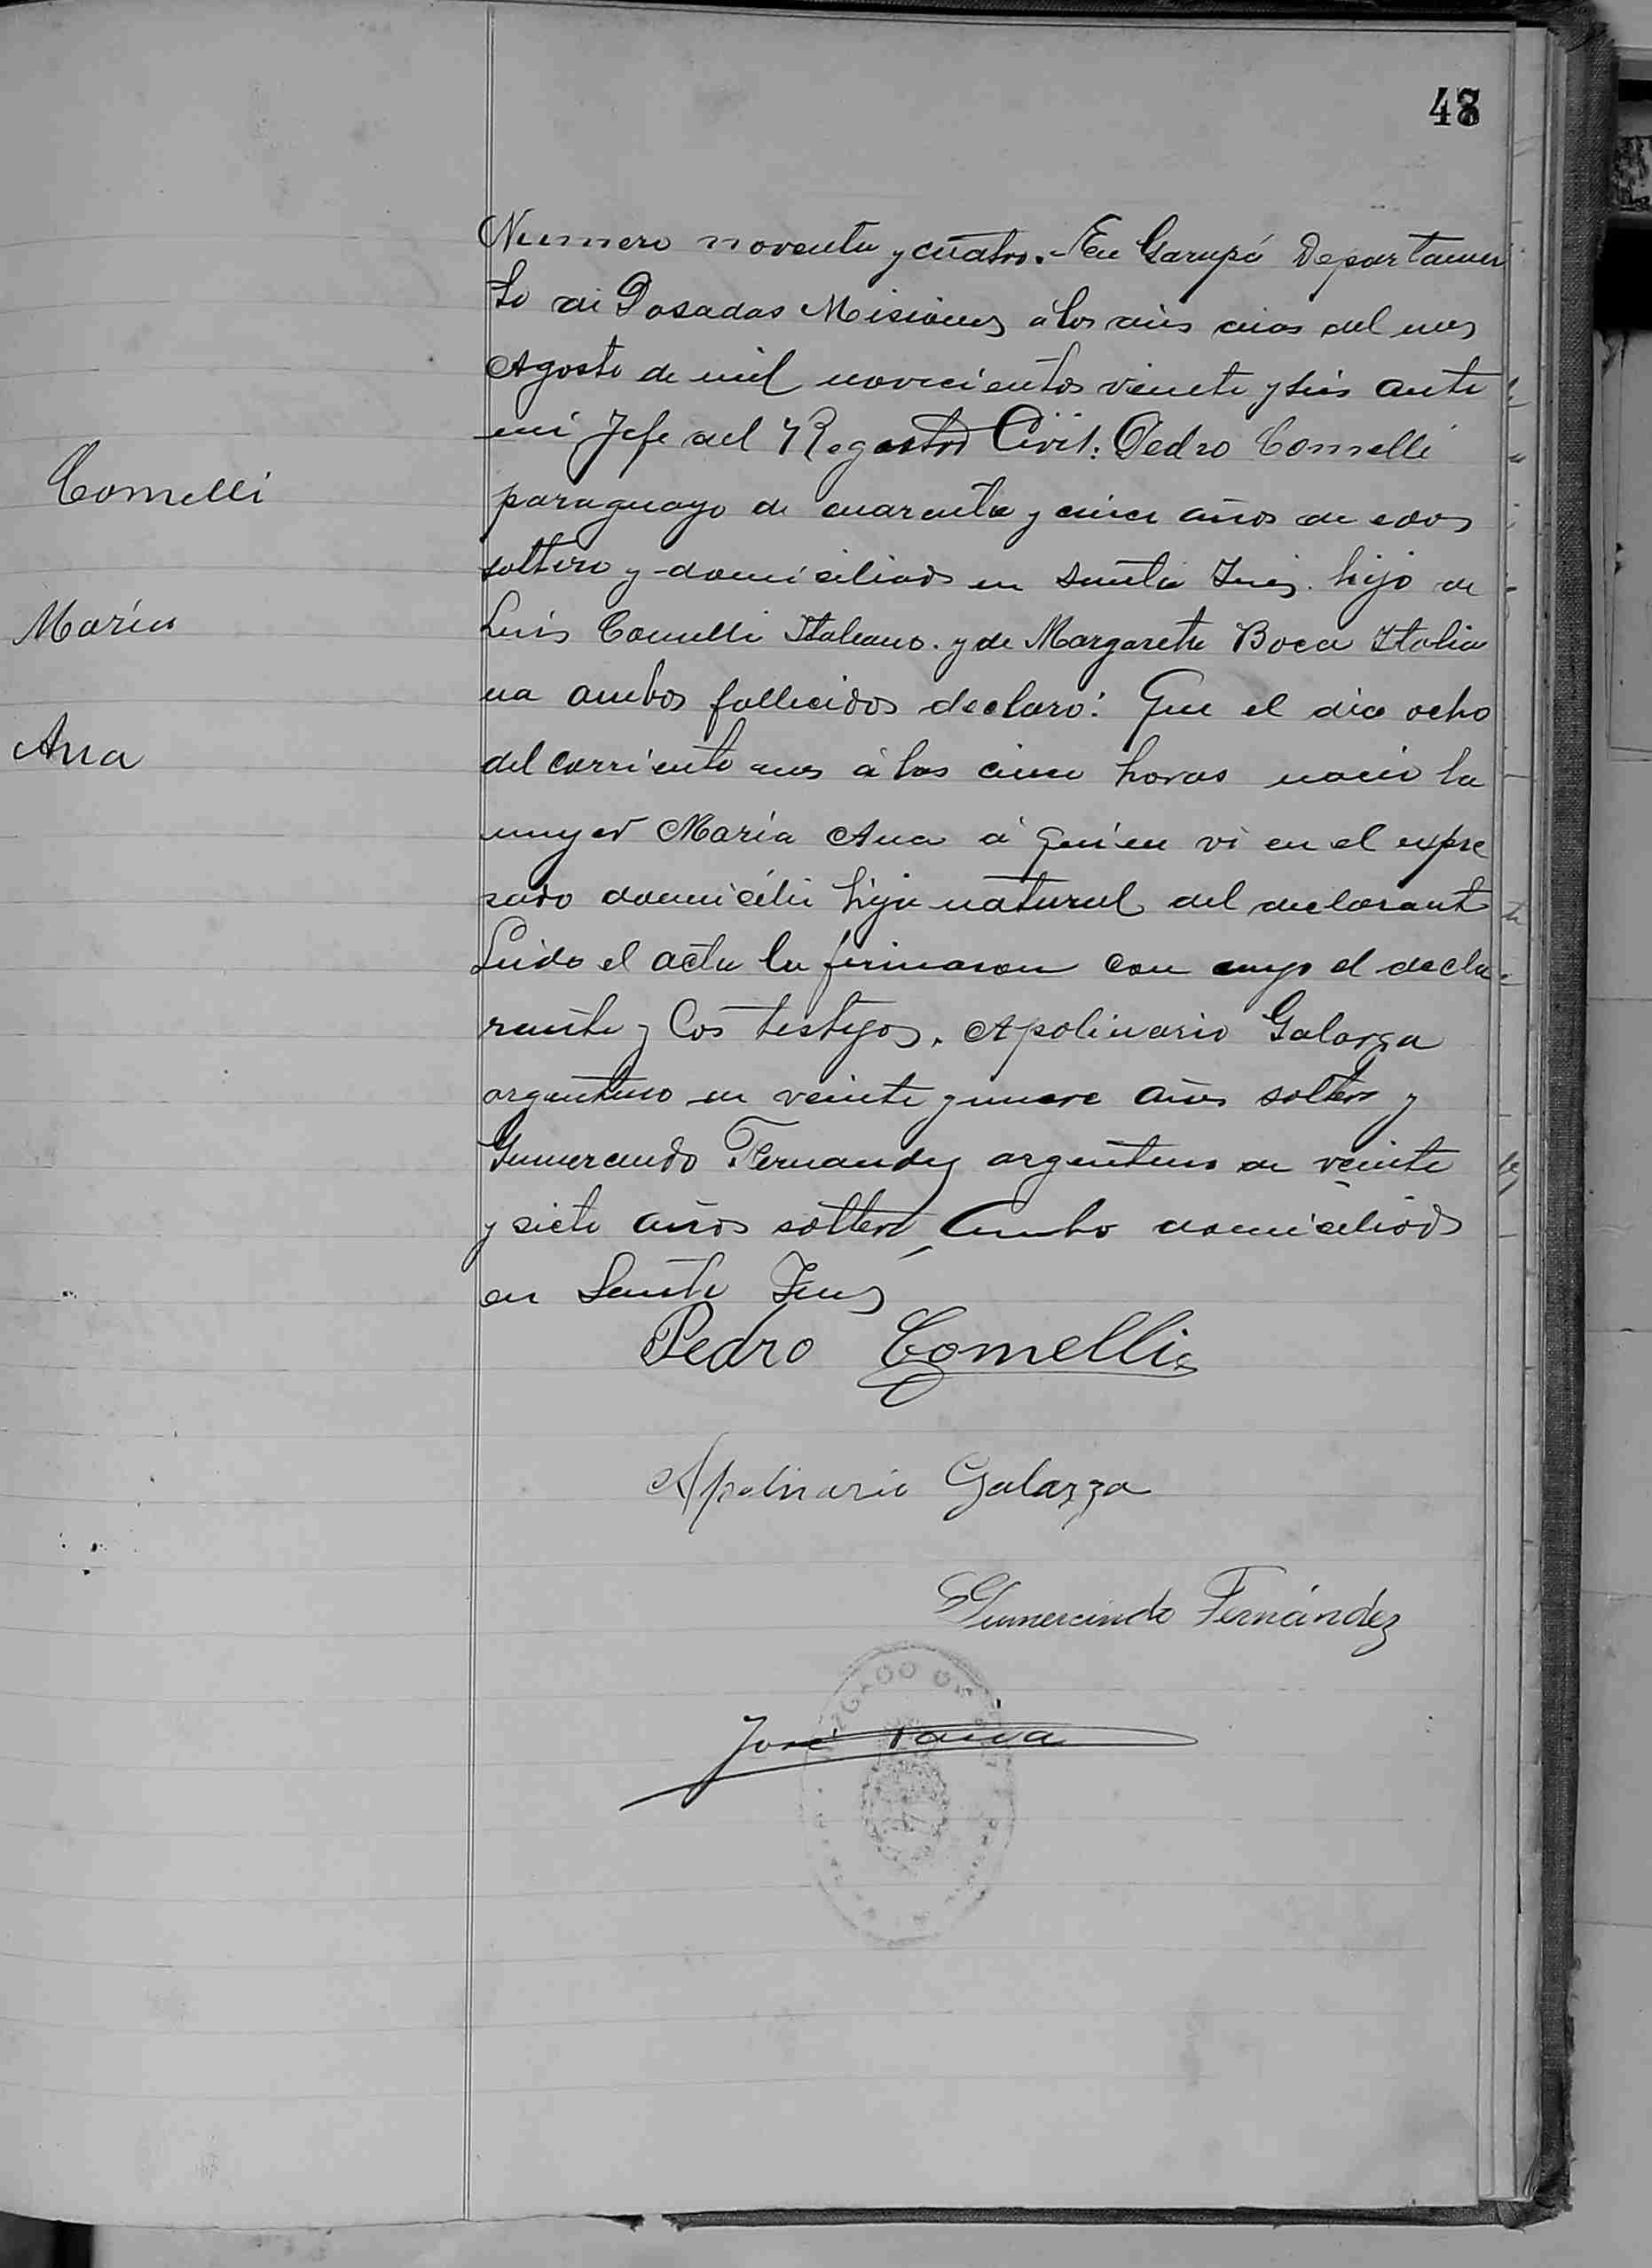 48
Numero noventa y cuatro. - En Garupá Departamen
to de Posadas Misiones á los dies dias del mes
Agosto de mil novecientos veinte y seis ante
mi Jefe del Registro Civil: Pedro Comelli
Comelli
paraguayo de cuarenta y cinco años de edad
soltero y domiciliado en Santa Ines. hijo de
María
Luis Comelli Italiano. y de Margarita Boca Italia
na ambos fallecidos declaró: Que el dia ocho
Ana
del corriente mes á las cinco horas nació la
mujer María Ana á quien vi en el expre
sado domicilio hija natural del declarante
Leido el acta la firmaron con migo el decla
rante y los testigos. Apolinario Galarza
argentino de veinte y nueve años soltero y
Gumercindo Fernandez argentino de veinte
y siete años soltero, Ambo domiciliados
en Santa Ines
Pedro Comelli
Apolinario Galarza
Gumercindo Fernández
José Paiva